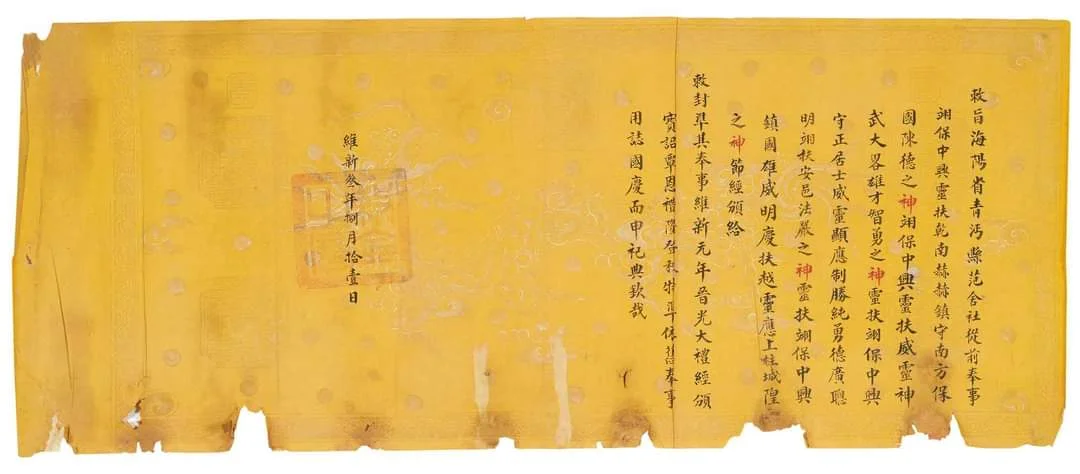 敕旨海陽省青沔縣范舍社從前奉事
翊保中興靈扶乾南赫赫鎮守南方保
國陳德之神翊保中興靈扶威靈神
武大畧雄才智勇之神靈扶翊保中興
守正居士威靈顯應制勝純勇德廣聰
明翊扶安邑法嚴之神靈扶翊保中興
鎮國雄威明慶扶越靈應上柱城隍
之神節經頒給
敕封準其奉事維新元年晉光大禮經頒
寶詔覃恩禮隆登秩特準依舊奉事
用誌國慶而申祀典欽哉
維新叁年捌月拾壹日